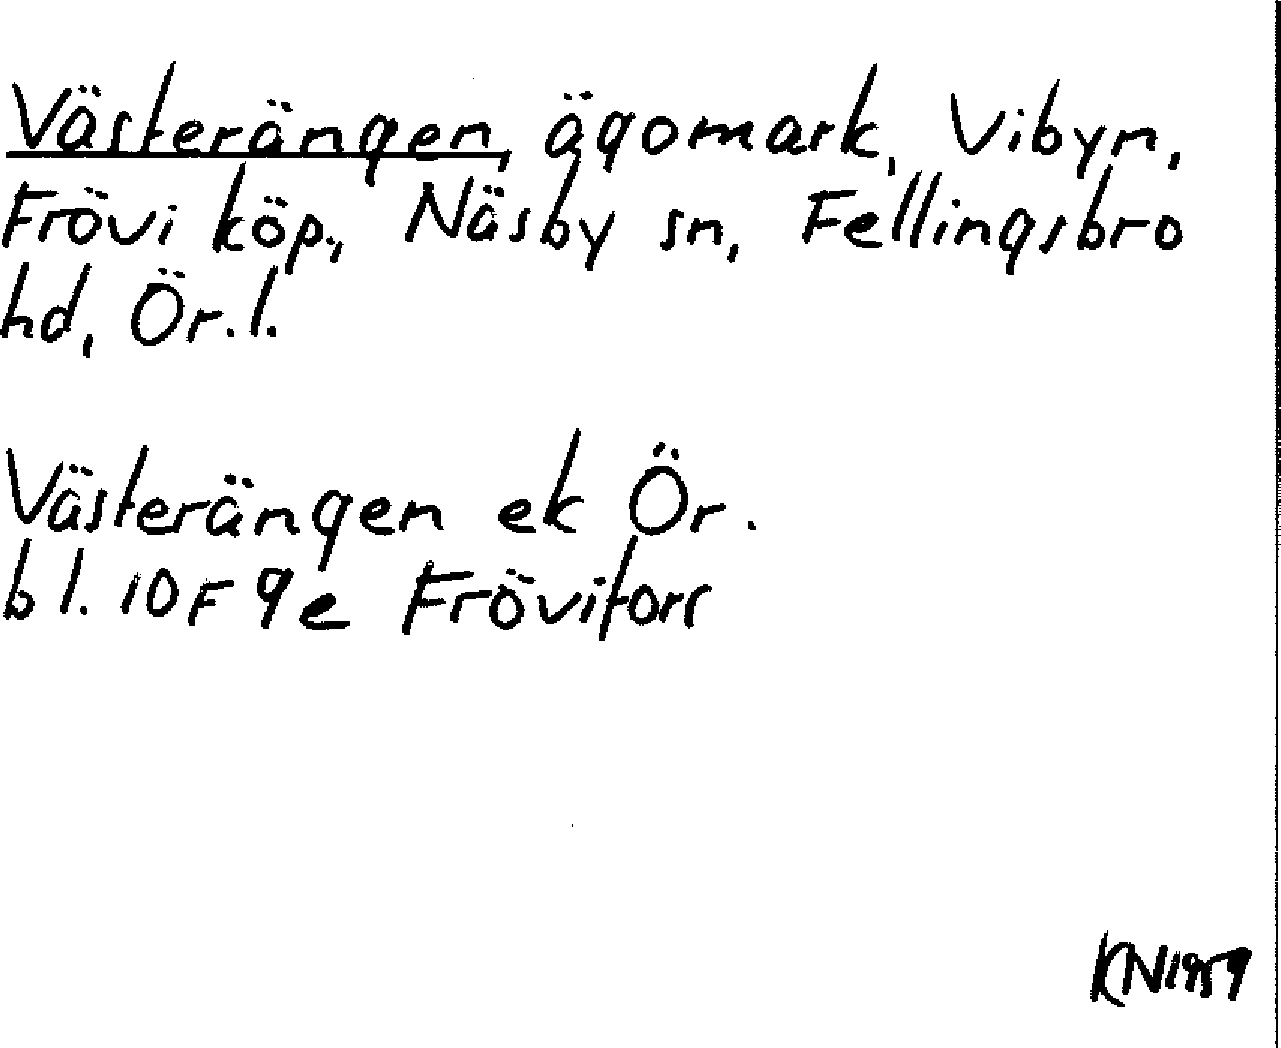 Västerängen, ägomark, Vibyn,
Frövi köp., Näsby sn, Fellingsbro
hd, Ör.l.
Västerängen ek Ör.
bl. 10F 9e Frövifors
KN1959